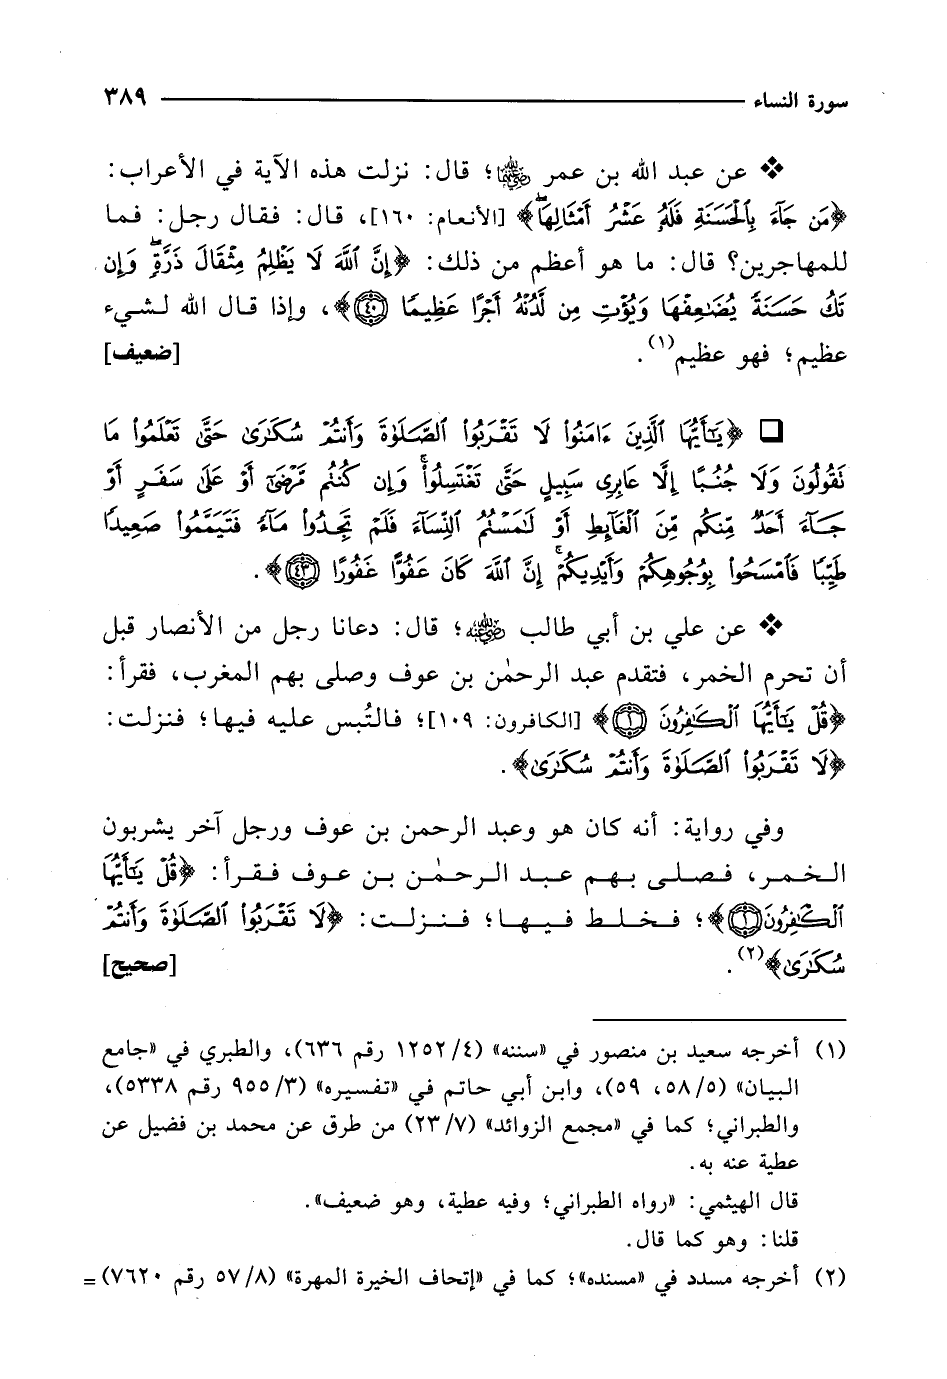 سورة النساء ٣٨٩
❖ عن عبد الله بن عمر رضي الله عنهما؛ قال: نزلت هذه الآية في الأعراب:
﴿مَن جَآءَ بِٱلْحَسَنَةِ فَلَهُۥ عَشْرُ أَمْثَالِهَاۖ﴾ [الأنعام: ١٦٠]، قال: فقال رجل: فما
للمهاجرين؟ قال: ما هو أعظم من ذلك: ﴿إِنَّ ٱللَّهَ لَا يَظْلِمُ مِثْقَالَ ذَرَّةٍۖ وَإِن
تَكُ حَسَنَةً يُضَـٰعِفْهَا وَيُؤْتِ مِن لَّدُنْهُ أَجْرًا عَظِيمًا ٤٠﴾، وإذا قال الله لشيء
عظيم؛ فهو عظيم(١). [ضعيف]
❑ ﴿يَـٰٓأَيُّهَا ٱلَّذِينَ ءَامَنُوا۟ لَا تَقْرَبُوا۟ ٱلصَّلَوٰةَ وَأَنتُمْ سُكَـٰرَىٰ حَتَّىٰ تَعْلَمُوا۟ مَا
تَقُولُونَ وَلَا جُنُبًا إِلَّا عَابِرِى سَبِيلٍ حَتَّىٰ تَغْتَسِلُوا۟ۚ وَإِن كُنتُم مَّرْضَىٰٓ أَوْ عَلَىٰ سَفَرٍ أَوْ
جَآءَ أَحَدٌ مِّنكُم مِّنَ ٱلْغَآئِطِ أَوْ لَـٰمَسْتُمُ ٱلنِّسَآءَ فَلَمْ تَجِدُوا۟ مَآءً فَتَيَمَّمُوا۟ صَعِيدًا
طَيِّبًا فَٱمْسَحُوا۟ بِوُجُوهِكُمْ وَأَيْدِيكُمْۗ إِنَّ ٱللَّهَ كَانَ عَفُوًّا غَفُورًا ٤٣﴾.
❖ عن علي بن أبي طالب رضي الله عنه؛ قال: دعانا رجل من الأنصار قبل
أن تحرم الخمر، فتقدم عبد الرحمٰن بن عوف وصلى بهم المغرب، فقرأ:
﴿قُلْ يَـٰٓأَيُّهَا ٱلْكَـٰفِرُونَ ١﴾ [الكافرون: ١٠٩]؛ فالتُبس عليه فيها؛ فنزلت:
﴿لَا تَقْرَبُوا۟ ٱلصَّلَوٰةَ وَأَنتُمْ سُكَـٰرَىٰ﴾.
وفي رواية: أنه كان هو وعبد الرحمن بن عوف ورجل آخر يشربون
الخمر، فصلى بهم عبد الرحمٰن بن عوف فقرأ: ﴿قُلْ يَـٰٓأَيُّهَا
ٱلْكَـٰفِرُونَ ١﴾؛ فخلط فيها؛ فنزلت: ﴿لَا تَقْرَبُوا۟ ٱلصَّلَوٰةَ وَأَنتُمْ
سُكَـٰرَىٰ﴾(٢). [صحيح]
(١) أخرجه سعيد بن منصور في «سننه» (٤/ ١٢٥٢ رقم ٦٣٦)، والطبري في «جامع
البيان» (٥/ ٥٨، ٥٩)، وابن أبي حاتم في «تفسيره» (٣/ ٩٥٥ رقم ٥٣٣٨)،
والطبراني؛ كما في «مجمع الزوائد» (٧/ ٢٣) من طرق عن محمد بن فضيل عن
عطية عنه به.
قال الهيثمي: «رواه الطبراني؛ وفيه عطية، وهو ضعيف».
قلنا: وهو كما قال.
(٢) أخرجه مسدد في «مسنده»؛ كما في «إتحاف الخيرة المهرة» (٨/ ٥٧ رقم ٧٦٢٠) =